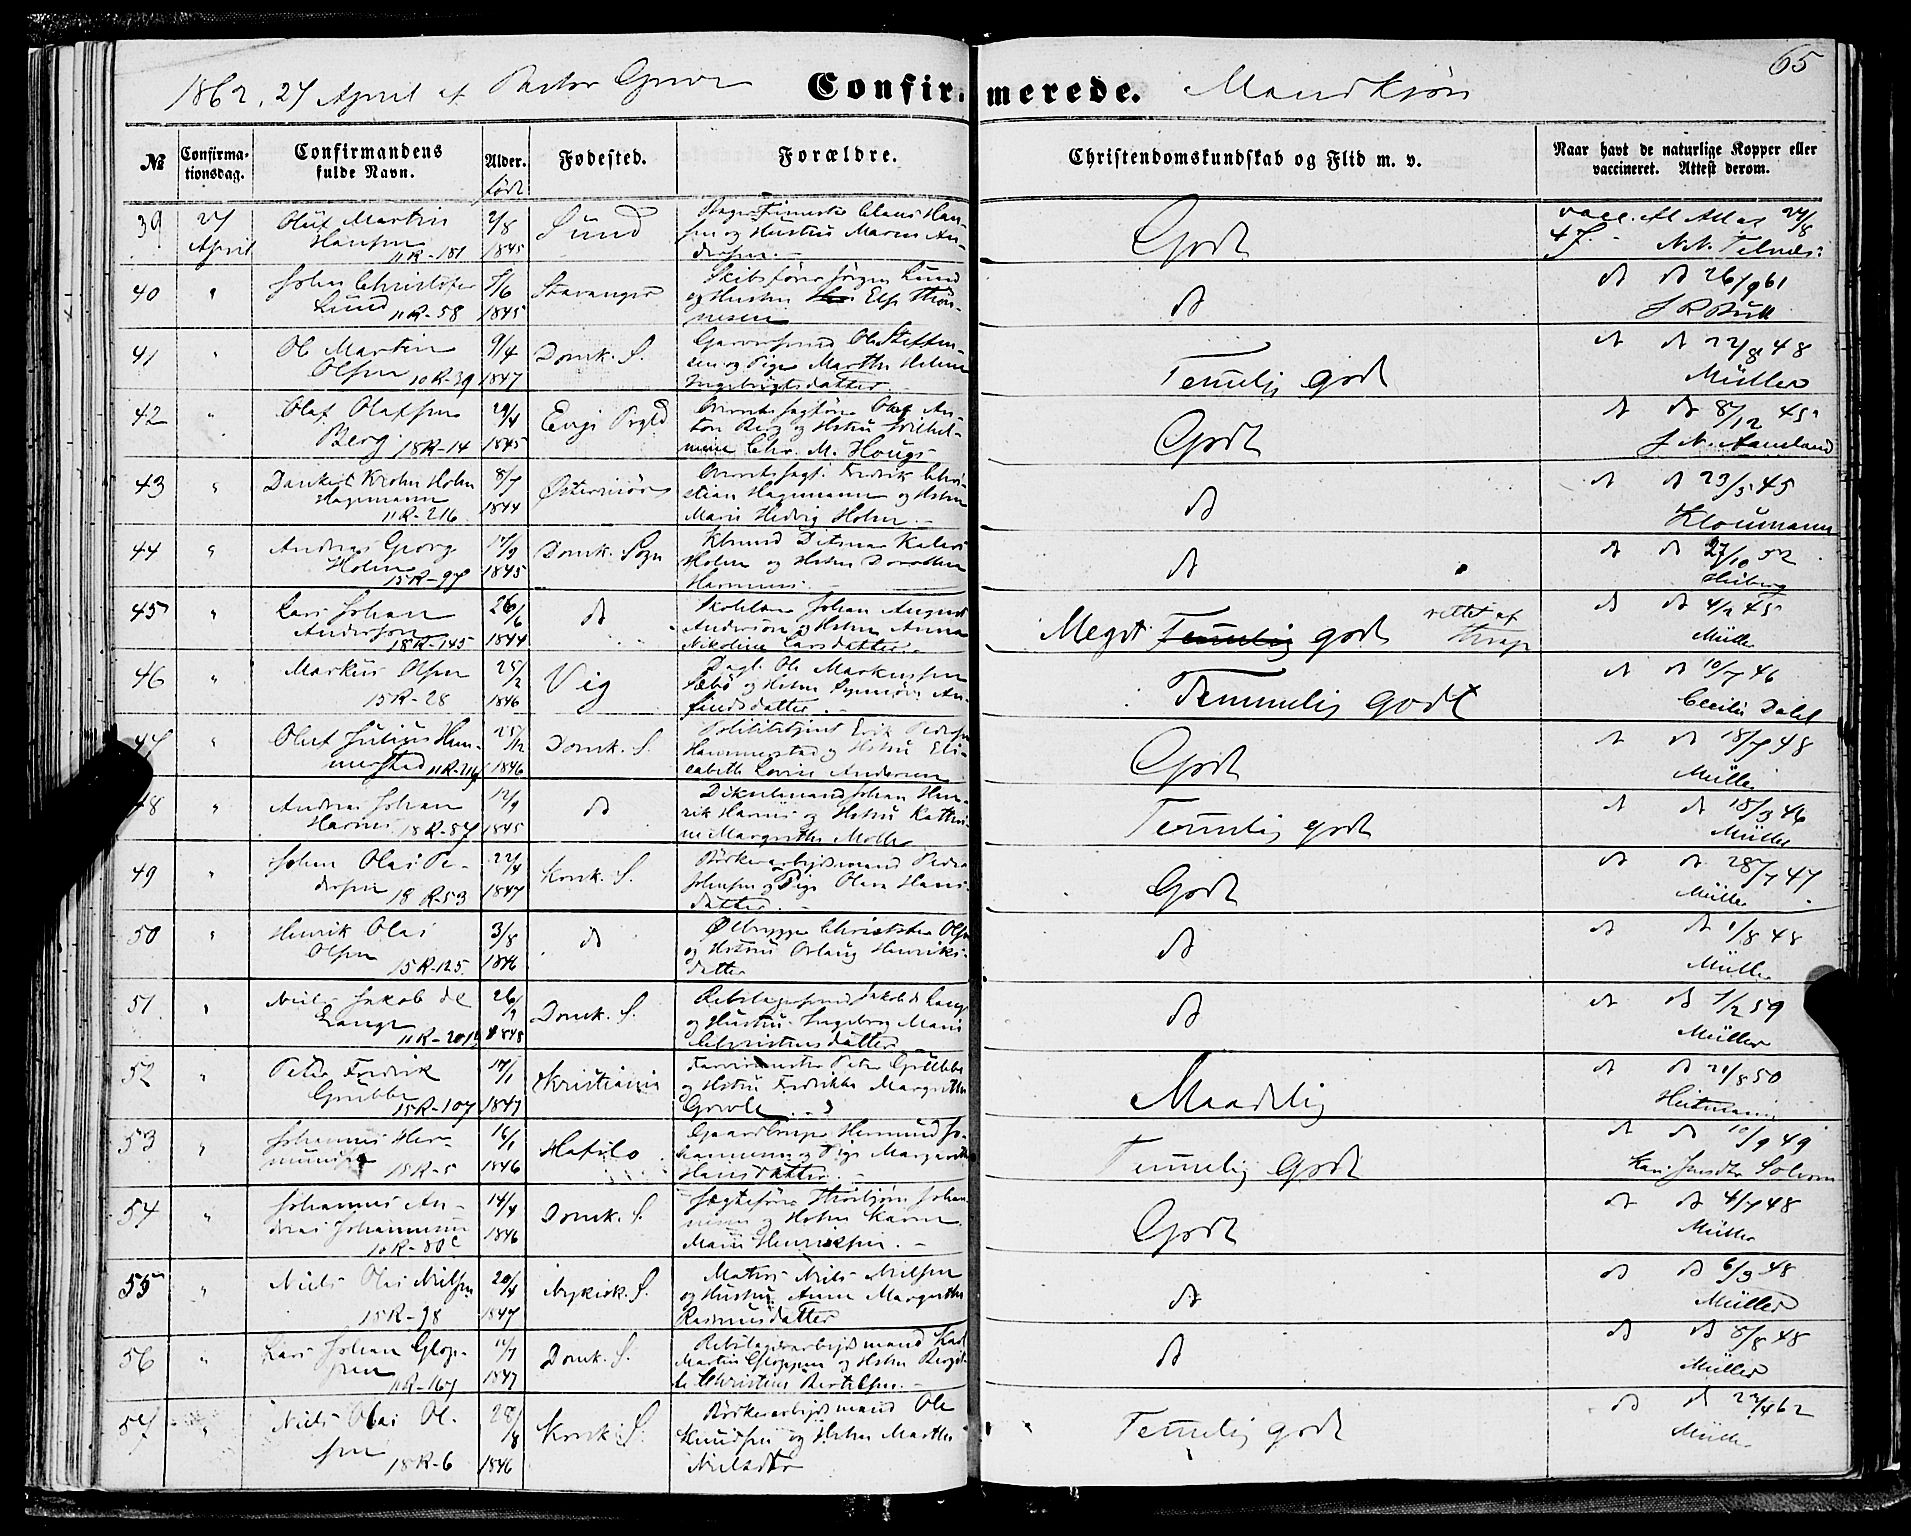 65
1862, 27 April af Pastor
Confirmerede. Mandkjøn
№
Confirma-
tionsdag.
Confirmandens
fulde Navn.
Alder.
født
Fødested.
Forældre.
Christendomskundskab og Flid m. v.
Naar havt de naturlige Kopper eller
vaccineret. Attest derom.
39 27 April
Oluf Martin
Hansen
11R-181
2/8
1845
Sund
Claus Han-
sen og Hustru Maren An-
dersen.
Godt
vacc. Att. 24/8
47.
40 "
Johan Christofer
Lund 11R-58
7/6
1845
Stavanger
Skibsfører Jørgen Lund
og Hustru Else Thön-
nesen
do
do do 26/9 61
41 "
Ole Martin
Olsen 10R-39
9/4
1847
Domk. S.
Ole Steffen-
sen og Pige Marthe Helene
Ingebrigtsdatter
Temmelig godt
do do 22/8 48
Müller
42 "
Olaf Olafsen
Berg 18R-14
29/4
1845
Overretssagfører Olaf An-
ton Berg og Hstru Vilhel-
mine Chr. M. Hougs
Godt
do do 8/12 45
43 "
Danckert Krohn Holm
Hagemann
11R-216
8/7
1844
Østerrisør
Overretssagf. Fredrik Chri-
stian Hagemann og Hstru
Marie Hedvig Holm.
do
do do 23/5 45
Kloumann
44 "
Andreas Georg
Holm
15R-97
17/9
1845
Domk. Sogn
Holm og Hstru Dorothea
do
do do 27/10 52
Heiberg
45 "
Lars Johan
Anderson
18R-145
26/6
1844
do
Johan August
Anderson og Hstru Anna
Nikoline Larsdatter.
Meget Temmelig godt rettet af
do do 4/2 45
Müller
46 "
Markus Olsen
15R-28
25/2
1846
Vig
Dagl. Ole Markussen
Sæbø og Hstru Synneve An-
findsdatter.
Temmelig godt
do do 10/7 46
Cecilie Dahl
47 "
Oluf Julius Ham-
merstad 11R-216
25/12
1846
Domk. S.
Politibetjent Erik Pedersen
Hammerstad og Hstru Eli-
sabeth Lovise Andersen
Godt
do do 18/7 48
Müller
48 "
Andreas Johan
Harmens 18R-87
12/9
1845
do
Johan Hen-
rik Harmens og Hstru Kathri-
ne Margrethe Moller
Temmelig godt
do do 18/3 46
Müller
49 "
Johan Olai Pe-
dersen 18R-53
22/4
1847
Korsk. S.
Bødkerarbejdsmand Peder
Johnsen og Pige Olina Hans-
datter.
Godt
do do 28/7 47
Müller
50 "
Henrik Olai
Olsen 15R-125.
3/8
1846
do
Ølbrygger Christopher Olsen
og Hstru Orlaug Henriks-
datter
do
do 1/8 48
Müller
51 "
Niels Jakob de
Lange
11R-201b
26/
1848
Domk. S.
Rebslagersvend Jakob de Lange
og Hustru Ingeborg Marie
Christensdatter
do
do do 1/2 59
Müller
52 "
Peter Fredrik
Grubbe
15R-107
17/1
1847
Kristiania
Peter Grubbe
og Hstru Fredrikke Margrethe
Maadelig
do do 21/8 50
Heitmann
53 "
Johannes Her-
mundsen 15R-5
16/1
1846
Hafslo
Gaardbruger Hermund Jo-
hannesen og Pige Margrethe
Hansdatter.
Temmelig godt
do do 10/9 49
54 "
Johannes An-
dreas Johannesen
10R-80c
14/4
1846
Domk. S.
Jægtefører Thorbjørn Johan-
nesen og Hstru Karen
Marie Henriksen.
Godt
do do 4/7 48
Müller
55 "
Niels Olai Nielsen
15R-98
20/4
1847
Nykirk. S.
Matros Niels Nielsen
og Hustru Anne Margrethe
Rasmusdatter
do
do do 6/9 48
Müller
56 "
Lars Johan Glop-
pen
11R-167
11/7
1847
Domk. S.
Rebslagerarbejdsmand Karl
Martin Gloppen og Hstru Berget-
te Christine Bertelsen.
do
do do 8/8 48
Müller
57 "
Niels Olai Ol-
sen
18R-6
28/8
1846
Korsk. S.
Bødkerarbejdsmand Ole
Knudsen og Hstru Marthe
Nielsdtr
Temmelig godt
do do 23/4 62
Müller